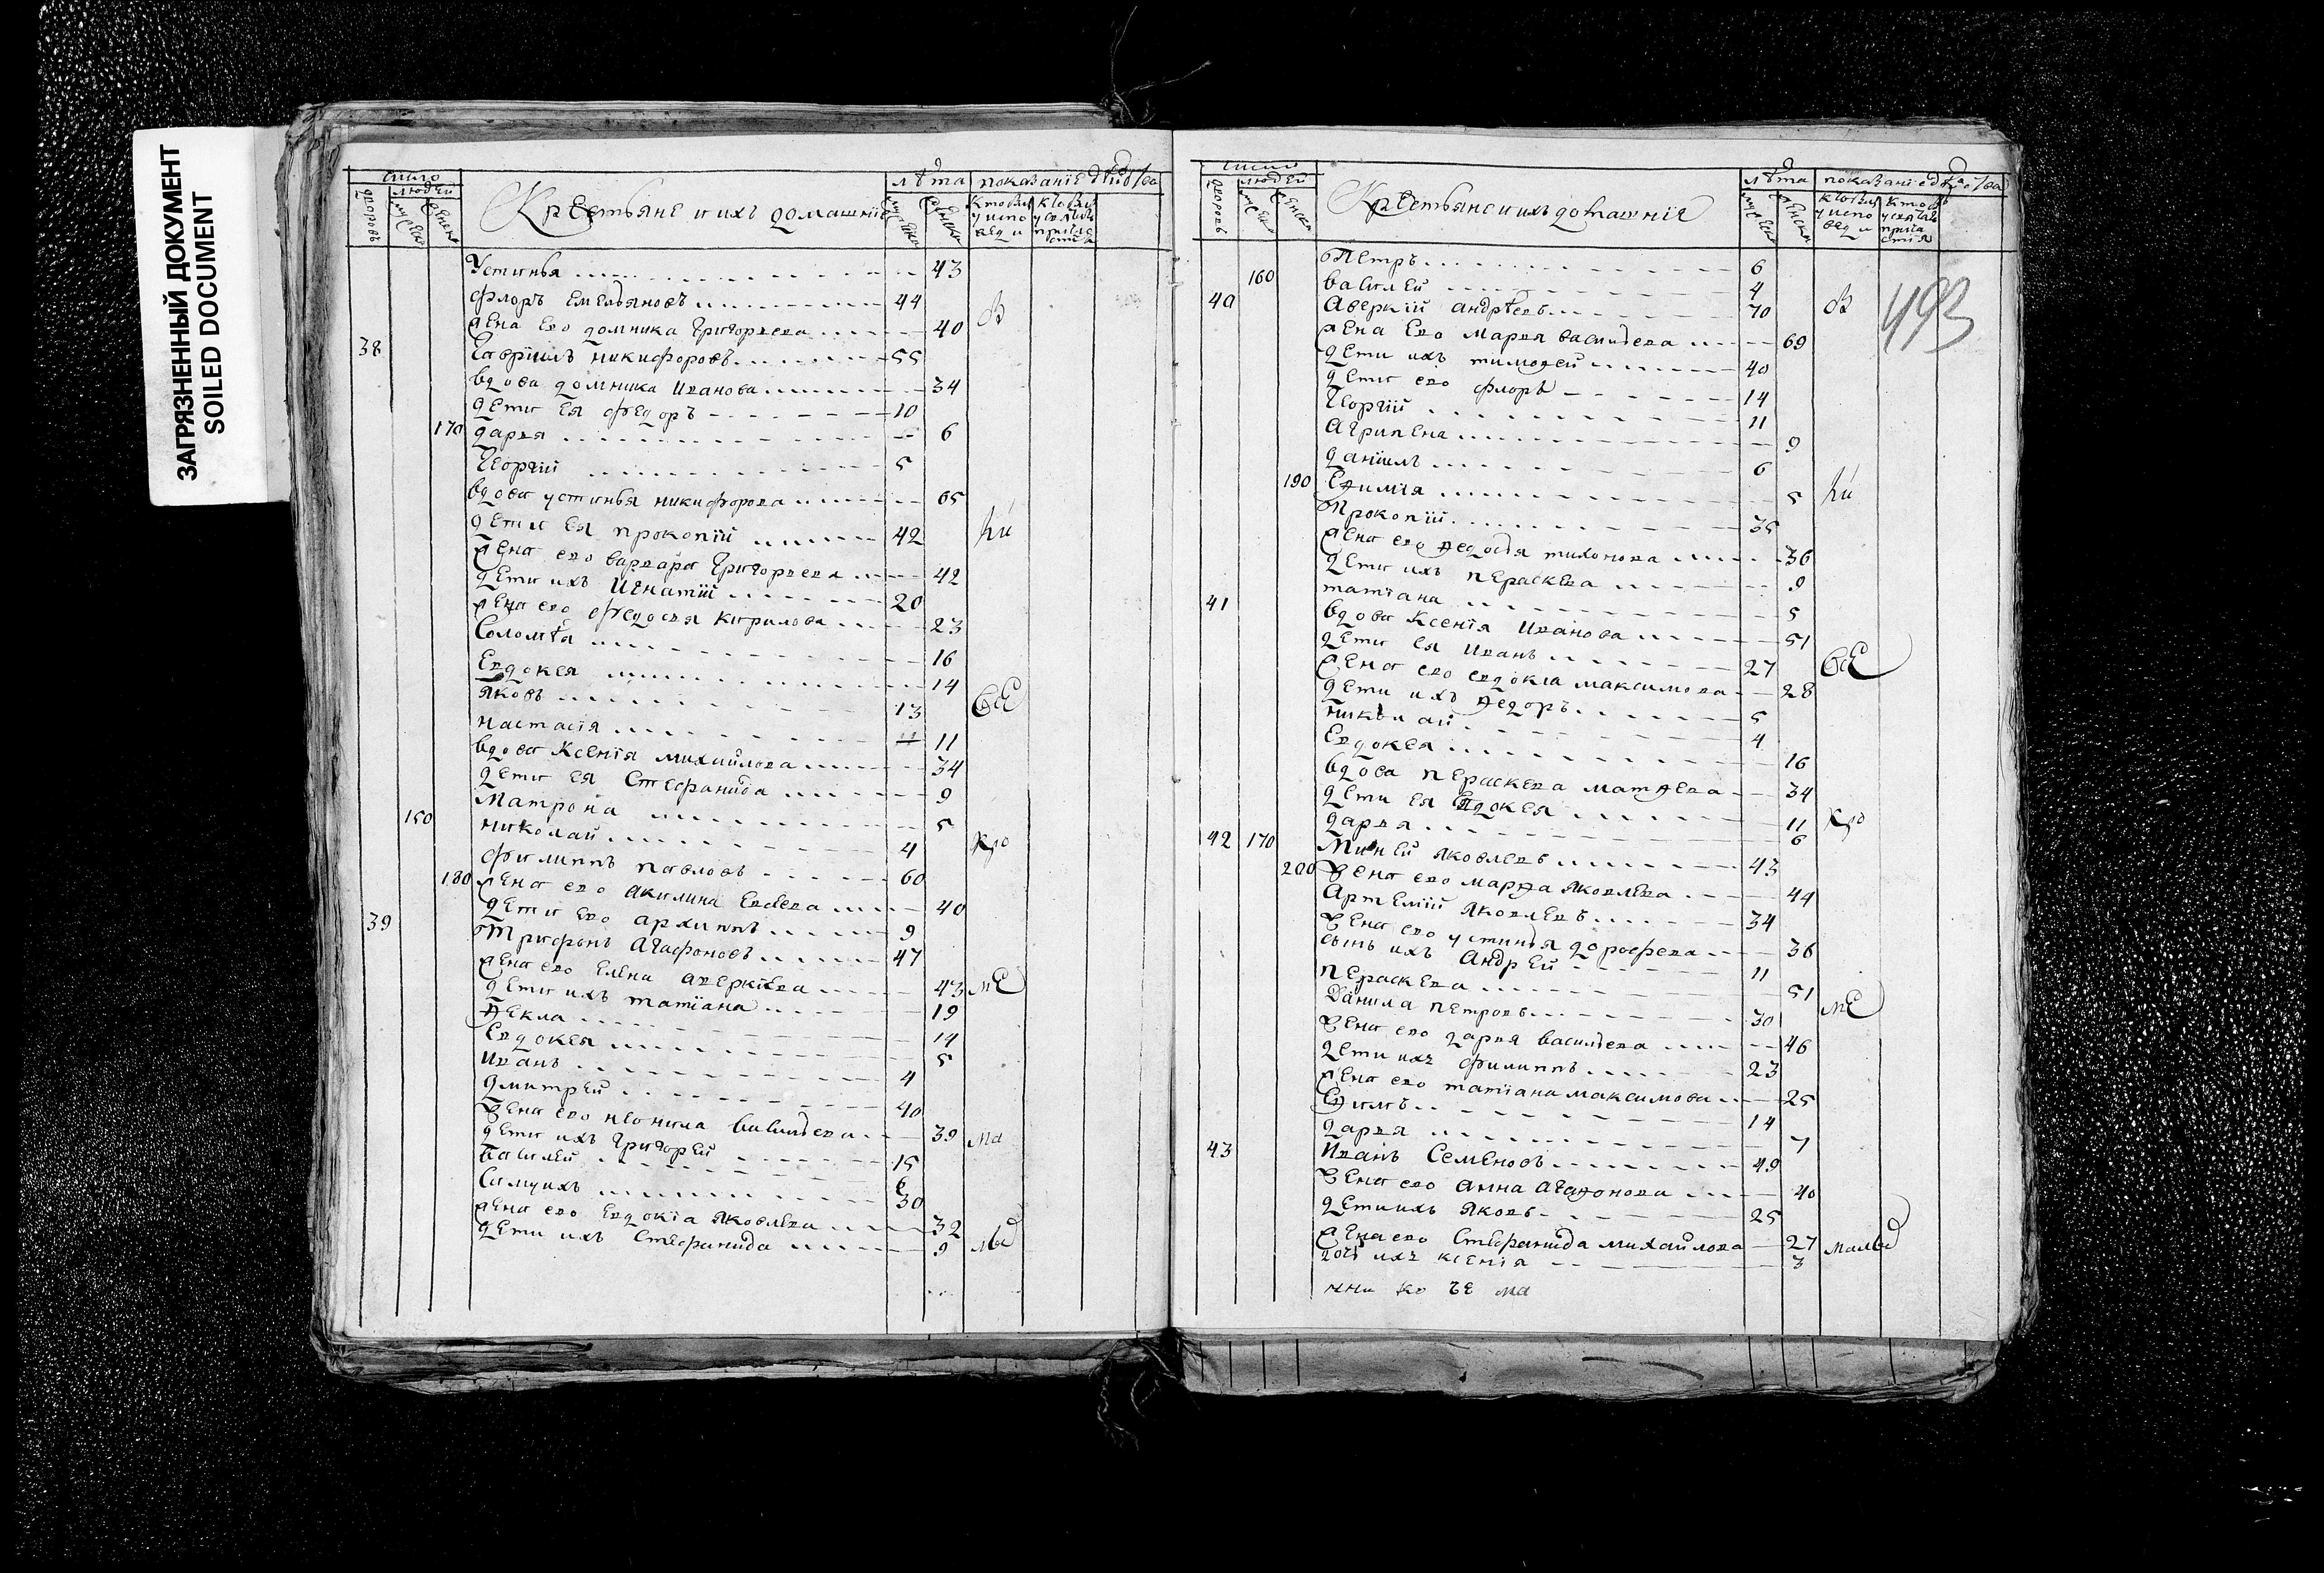 ЗАГРЯЗНЕННЫЙ ДОКУМЕНТ
SOILED DOCUMENT
число лѣта показанїе дѣйства
людей
Крестьяне и ихъ домашнїе
Устинья 43
флоръ Емельяновъ 44
жена Его домника Григорьева 40
38 Гаврїилъ никифоровъ 55
вдова домника Иванова 34
дети Ея федоръ 10
170 дарья 6
Георгїй 5
вдова устинья никифорова 65
дети Ея прокопїй 42
жена его варвара Григорьева 42
дети ихъ Игнатїй 20
жена его федосья кирилова 23
Соломѣя 16
Евдокея 14
Яковъ 13
настасїя 11
вдова Ксенїя михайлова 34
дети ея Стефанида 9
Матрона 5
150 николай 4
филиппъ павловъ 60
180 жена его акилина Евсева 40
дети Его архиппъ 9
39 Трифонъ Агафоновъ 47
жена его Елена аверкїева 43
дети ихъ татїана 19
Ѳекла 14
Евдокея 5
Иванъ 4
дмитрей 40
жена его неонила васильева 39
дети ихъ Григорей 15
василей 6
Самуилъ 30
жена его Евдокїа Яковлева 32
дети ихъ Стефанида 9
число лѣта показанїе дѣйства
людей
Крестьяне и ихъ домашнїе
493
Петръ 6
160 василей 4
40 Аверкїй андрѣевъ 70
жена Его Марья васильева 69
дети ихъ тимоѳей 40
дети его флоръ 14
Георгїй 11
Агрипена 9
данїилъ 6
190 Еѳимїя 5
Прокопїй 35
жена его Ѳедосья тихонова 36
дети ихъ пераскева 9
татїана 5
41 вдова Ксенїя Иванова 51
дети ея Иванъ 27
жена его евдокїа максимова 28
дети ихъ Ѳедоръ 5
николай 4
Евдокея 16
вдова пераскева матѳева 34
дети ея Евдокея 11
дарья 6
42 170 Миней Яковлевъ 43
200 жена его марѳа Яковлева 44
Артемїй Яковлевъ 34
жена его устинья дорофеева 36
сынъ ихъ Андрей 11
пераскева 51
Данила петровъ 30
жена его дарья васильева 46
дети ихъ филиппъ 23
жена его татїана максимова 25
Еѳимъ 14
дарья 7
43 Иванъ Семеновъ 49
жена его анна агаѳонова 40
дети ихъ Яковъ 25
жена его Стефанида михайлова 27
дочь ихъ ксенїя 3